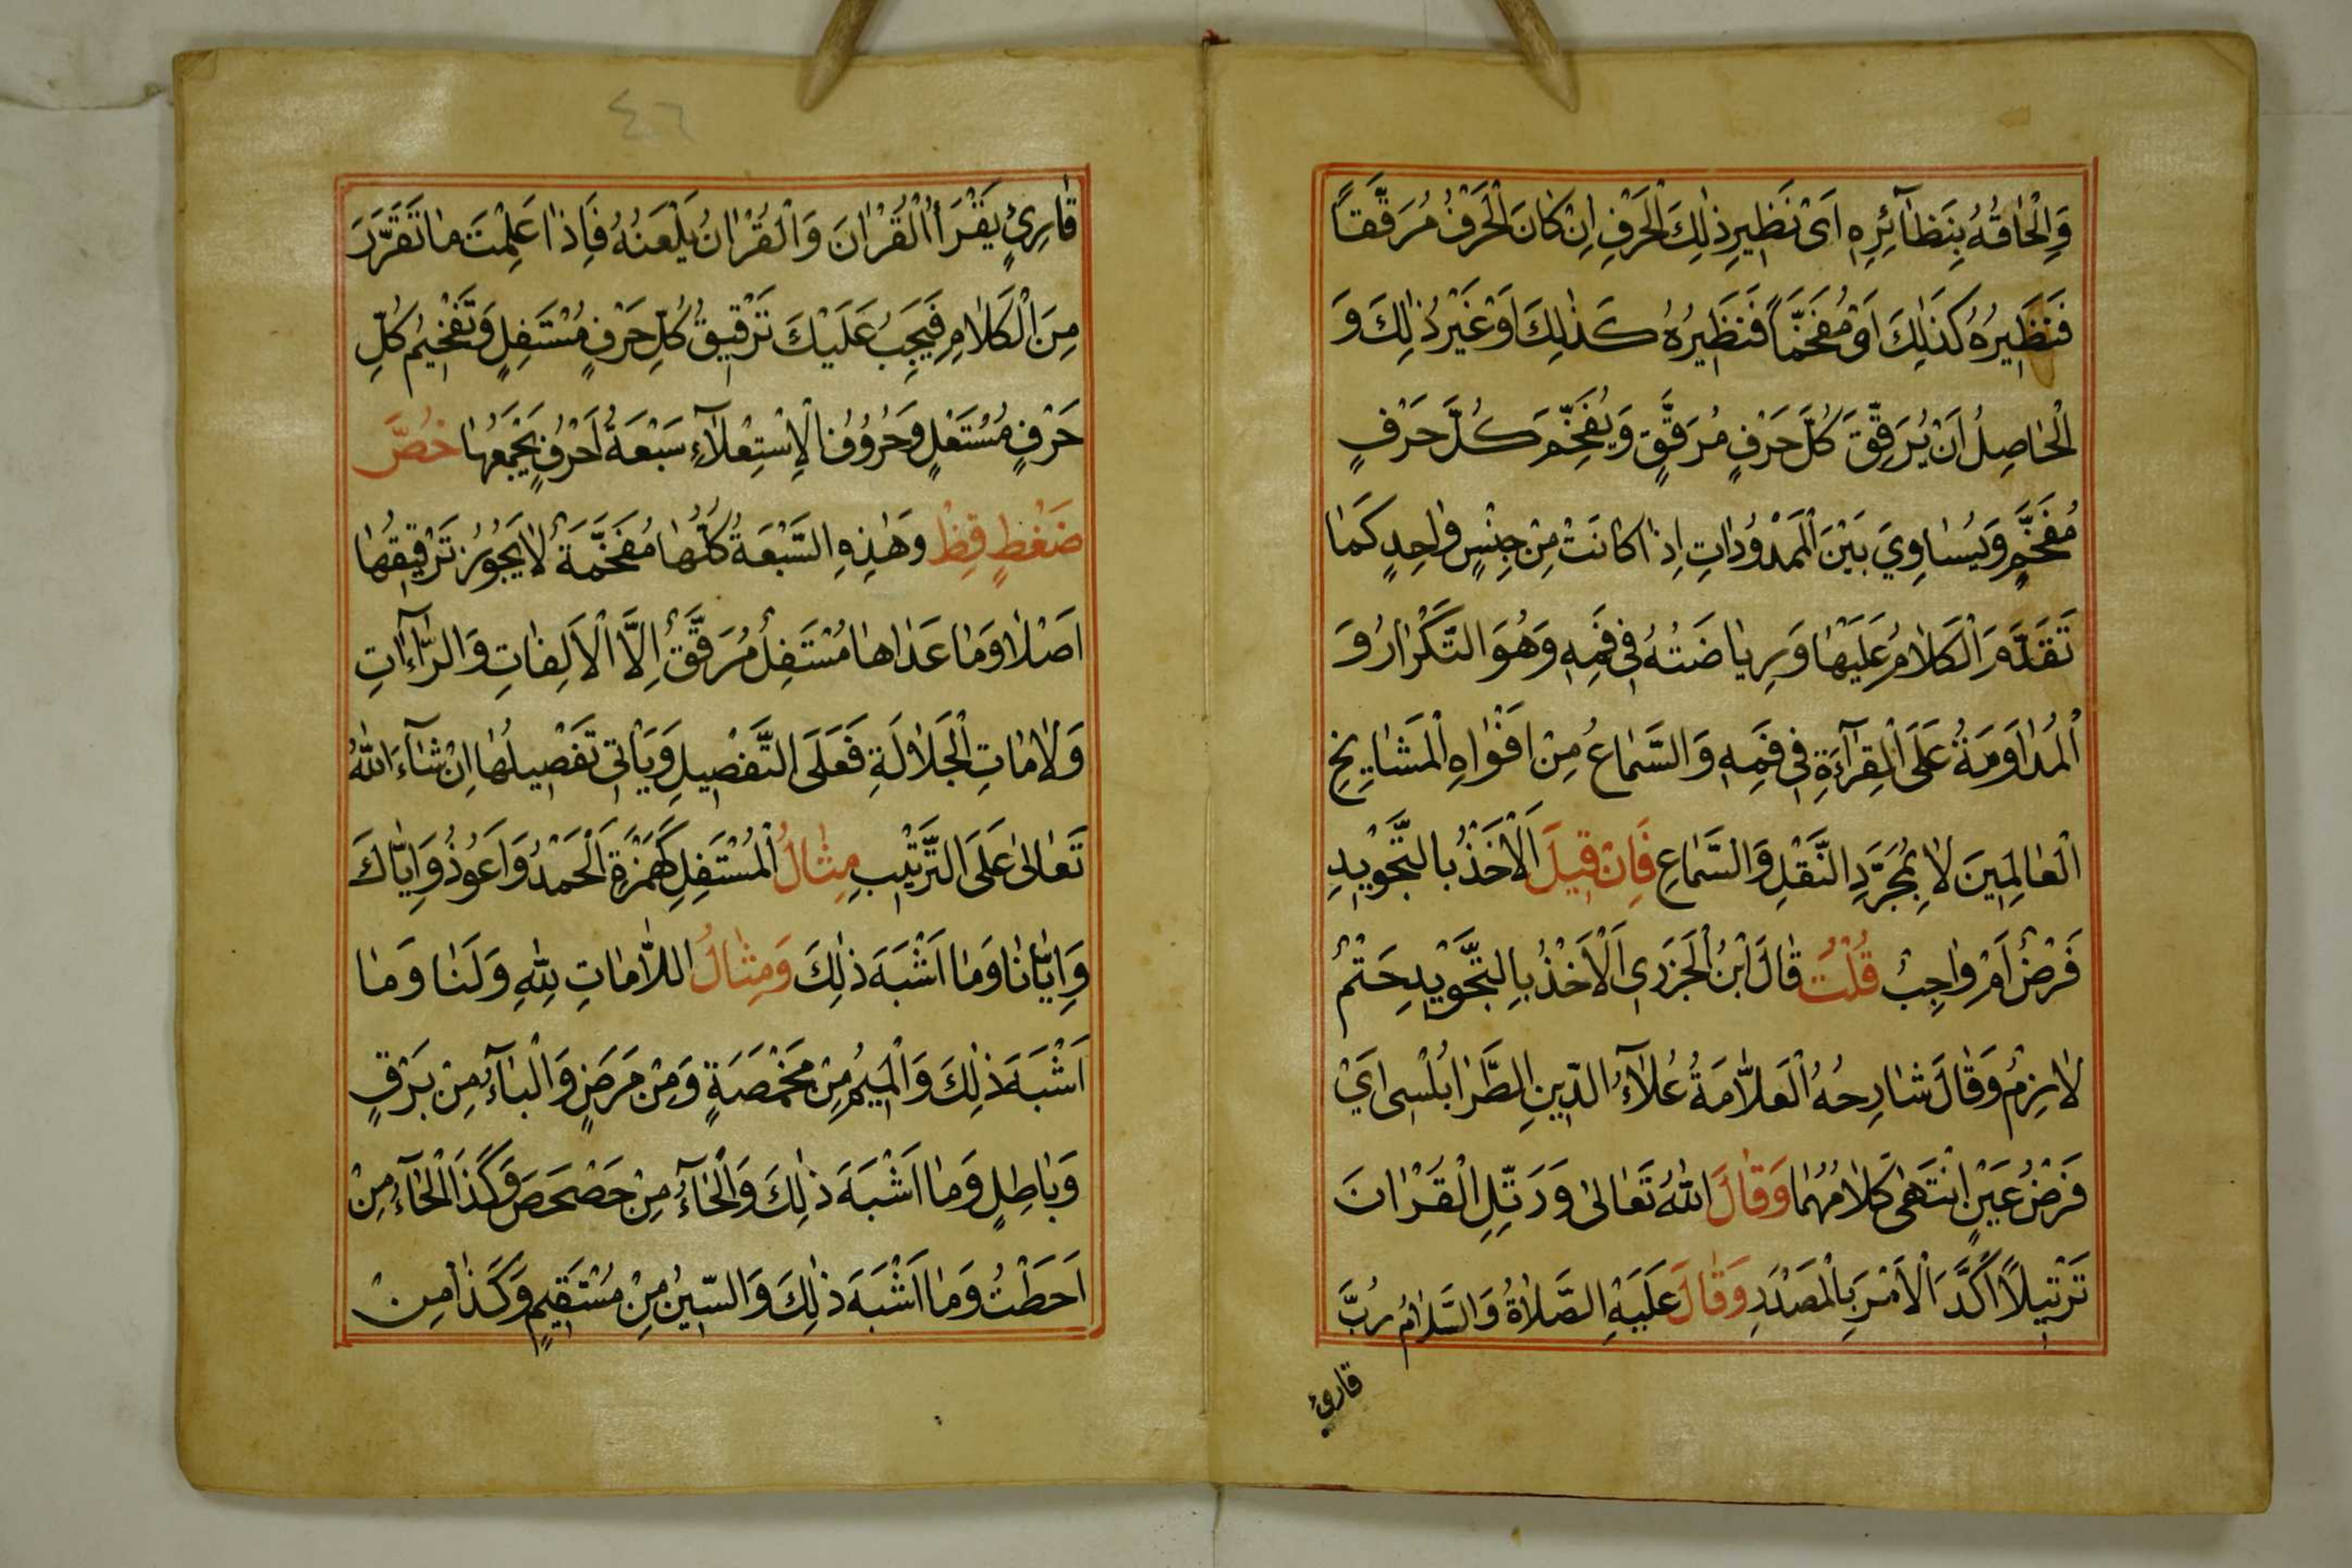 وَاِلْحَاقُهُ بِنَظَآئِرِهِ اَىْ نَظِيرِ ذٰلِكَ الْحَرْفِ اِنْ كَانَ الْحَرْفُ مُرَقَّقاً
فَنَظِيرُهُ كَذٰلِكَ اَوْ مُفَخَّمًا فَنَظِيرُهُ كَذٰلِكَ اَوْ غَيْرُ ذٰلِكَ وَ
الْحَاصِلُ اَنْ يُرَقِّقَ كُلَّ حَرْفٍ مُرَقَّقٍ وَيُفَخِّمَ كُلَّ حَرْفٍ
مُفَخَّمٍ وَيُسَاوِيَ بَيْنَ الْمَمْدُودَاتِ اِذَا كَانَتْ مِنْ جِنْسٍ وَاحِدٍ كَمَا
تَقَدَّمَ الْكَلَامُ عَلَيْهَا وَرِيَاضَتُهُ فِى فَمِهِ وَهُوَ التَّكْرَارُ وَ
الْمُدَاوَمَةُ عَلَى الْقِرَآءَةِ فِى فَمِهِ وَالسَّمَاعُ مِنْ اَفْوَاهِ الْمَشَايِخِ
الْعَالِمِينَ لَا بِمُجَرَّدِ النَّقْلِ وَالسَّمَاعِ فَاِنْ قِيلَ اَلْاَخْذُ بِالتَّجْوِيدِ
فَرْضٌ اَمْ وَاجِبٌ قُلْتُ قَالَ ابْنُ الْجَزَرِى اَلْاَخْذُ بِالتَّجْوِيدِ حَتْمٌ
لَازِمٌ وَقَالَ شَارِحُهُ الْعَلَّامَةُ عُلَآءُ الدِّينِ الطَّرَابُلْسِى اَيْ
فَرْضُ عَيْنٍ اِنْتَهٰى كَلَامُهُمَا وَقَالَ اللّٰهُ تَعَالٰى وَرَتِّلِ الْقُرْاٰنَ
تَرْتِيلًا اَكَّدَ الْاَمْرَ بِالْمَصْدَرِ وَقَالَ عَلَيْهِ الصَّلَاةُ وَالسَّلَامُ رُبَّ
قارئ
٤٦
قَارِئٍ يَقْرَأُ الْقُرْاٰنَ وَالْقُرْاٰنُ يَلْعَنُهُ فَاِذَا عَلِمْتَ مَا تَقَرَّرَ
مِنَ الْكَلَامِ فَيَجِبُ عَلَيْكَ تَرْقِيقُ كُلِّ حَرْفٍ مُسْتَفِلٍ وَتَفْخِيمُ كُلِّ
حَرْفٍ مُسْتَعْلٍ وَحُرُوفُ الْاِسْتِعْلَآءِ سَبْعَةُ اَحْرُفٍ يَجْمَعُهَا خُصَّ
ضَغْطٍ قِظْ وَهٰذِهِ السَّبْعَةُ كُلُّهَا مُفَخَّمَةٌ لَا يَجُوزُ تَرْقِيقُهَا
اَصْلًا وَمَا عَدَاهَا مُسْتَفِلٌ مُرَقَّقٌ اِلَّا الْاَلِفَاتِ وَالرَّاآتِ
وَلَامَاتِ الْجَلَالَةِ فَعَلَى التَّفْصِيلِ وَيَأْتِى تَفْصِيلُهَا اِنْ شَآءَ اللّٰهُ
تَعَالٰى عَلَى التَّرْتِيبِ مِثَالُ الْمُسْتَفِلِ كَهَمْزَةِ اَلْحَمْدُ وَاَعُوذُ وَاِيَّاكَ
وَاِيَّانَا وَمَا اَشْبَهَ ذٰلِكَ وَمِثَالُ اللَّامَاتِ لِلّٰهِ وَلَنَا وَمَا
اَشْبَهَ ذٰلِكَ وَالْمِيمُ مِنْ مَخْمَصَةٍ وَمِنْ مَرَضٍ وَالْبَآءُ مِنْ بَرْقٍ
وَبَاطِلٍ وَمَا اَشْبَهَ ذٰلِكَ وَالْحَآءُ مِنْ حَصْحَصَ وَكَذَا الْحَآءُ مِنْ
اَحَطْتُ وَمَا اَشْبَهَ ذٰلِكَ وَالسِّينُ مِنْ مُسْتَقِيمٍ وَكَذَا مِنْ